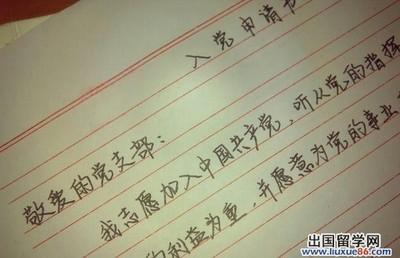 入党申请书
敬爱的党支部:
我志愿加入中國共产党，听从党的指挥
的利益为重，并愿意为党的事业
出国留学网
www.liuxue86.com